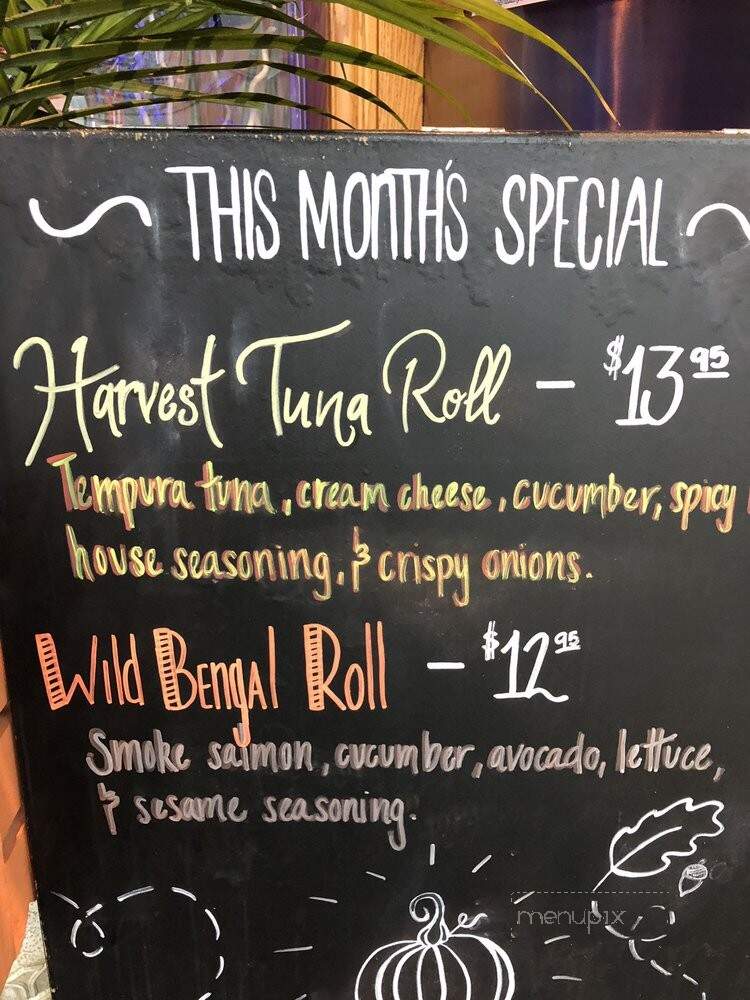 THIS MONTH'S SPECIAL
Harvest Tuna Roll - $13 95
Tempura tuna, cream cheese, cucumber, spicy
house seasoning, & crispy onions.
Wild Bengal Roll - $12 95
Smoke salmon, cucumber, avocado, lettuce,
& sesame seasoning.
menupix